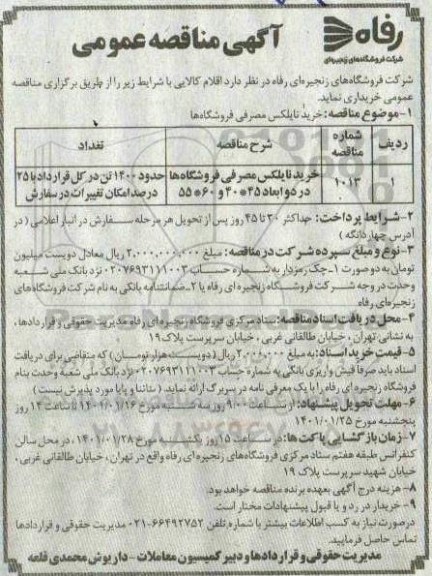 رفاه
شرکت فروشگاه‌های زنجیره‌ای
آگهی مناقصه عمومی
شرکت فروشگاه‌های زنجیره‌ای رفاه در نظر دارد اقلام کالایی با شرایط زیر را از طریق برگزاری مناقصه
عمومی خریداری نماید.
۱-موضوع مناقصه: خرید نایلکس مصرفی فروشگاه‌ها
ردیف شماره مناقصه شرح مناقصه تعداد
۱ ۱۰۱۳ خرید نایلکس مصرفی فروشگاه‌ها حدود ۱۴۰۰ تن در کل قرارداد با ۲۵
در دو ابعاد ۴۵*۴۰ و ۶۰*۵۵ درصد امکان تغییرات در سفارش
۲-شرایط پرداخت: حداکثر ۳۰ تا ۴۵ روز پس از تحویل هر مرحله سفارش در انبار اعلامی (در
آدرس چهاردانگه)
۳-نوع و مبلغ سپرده شرکت در مناقصه: مبلغ ۲,۰۰۰,۰۰۰,۰۰۰ ریال معادل دویست میلیون
تومان به دو صورت ۱-چک رمزدار به شماره حساب ۰۲۰۷۶۹۳۱۱۱۰۰۳ نزد بانک ملی شعبه
وحدت در وجه شرکت فروشگاه زنجیره ای رفاه یا ۲-ضمانتنامه بانکی به نام شرکت فروشگاه های
زنجیره‌ای رفاه
۴-محل دریافت اسناد مناقصه: ستاد مرکزی فروشگاه زنجیره ای رفاه مدیریت حقوقی و قراردادها،
به نشانی تهران، خیابان طالقانی غربی، خیابان سرپرست پلاک ۱۹
۵-قیمت خرید اسناد: به مبلغ ۲,۰۰۰,۰۰۰ ریال (دویست هزار تومان) که متقاضی برای دریافت
اسناد باید صرفا فیش واریزی بانکی به شماره حساب ۰۲۰۷۶۹۳۱۱۱۰۰۳ نزد بانک ملی شعبه وحدت بنام
فروشگاه زنجیره ای رفاه را با یک معرفی نامه در سربرگ ارائه نماید. (ساتنا و پایا مورد پذیرش نیست)
۶-مهلت تحویل پیشنهاد: از ساعت ۹:۰۰ روز سه شنبه مورخ ۱۴۰۱/۰۱/۱۶ تا ساعت ۱۳ روز
پنجشنبه مورخ ۱۴۰۱/۰۱/۲۵
۷-زمان بازگشایی پاکت ها: در ساعت ۱۵ روز یکشنبه مورخ ۱۴۰۱/۰۱/۲۸، در محل سالن
کنفرانس طبقه هفتم ستاد مرکزی فروشگاه‌های زنجیره‌ای رفاه واقع در تهران، خیابان طالقانی غربی،
خیابان شهید سرپرست پلاک ۱۹
۸-هزینه درج آگهی بعهده برنده مناقصه خواهد بود.
۹-خریدار در رد و یا قبول پیشنهادات مختار است.
درصورت نیاز به کسب اطلاعات بیشتر با شماره تلفن ۶۶۴۹۲۷۵۲-۰۲۱ مدیریت حقوقی و قراردادها
تماس حاصل فرمایید.
مدیریت حقوقی و قراردادها و دبیر کمیسیون معاملات - داریوش محمدی قلعه